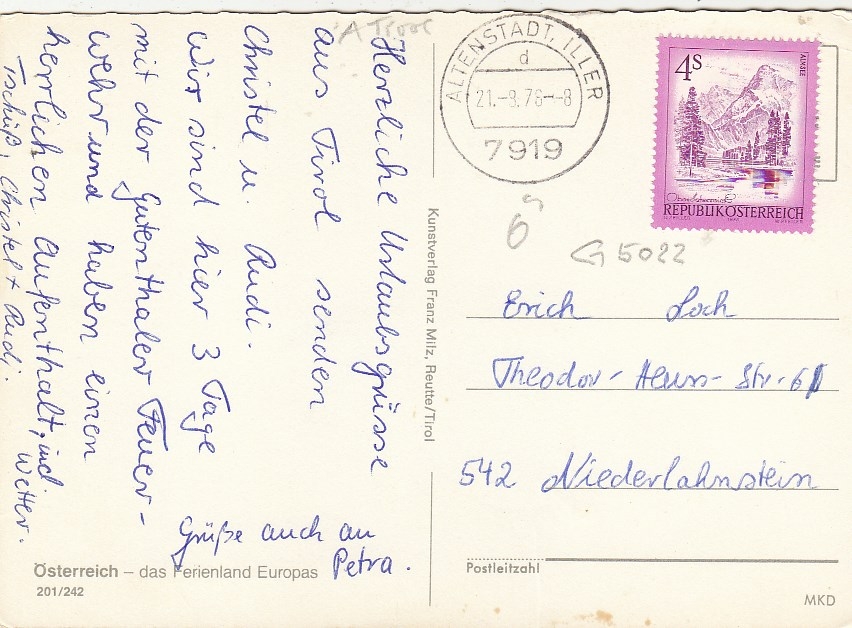 Herzliche Urlaubsgrüsse
aus Tirol senden
Christel u. Rudi.
Wir sind hier 3 Tage
mit der Gutenthaler Feuer-
wehr und haben einen
herrlichen Aufenthalt, incl.
Wetter.
Tschüß, Christel + Rudi.
Grüße auch an
Petra.
Österreich – das Ferienland Europas
201/242
Kunstverlag Franz Milz, Reutte/Tirol
A Tirol
ALTENSTADT, ILLER
d
21.-9.76--8
7919
4S
ALMSEE
REPUBLIK ÖSTERREICH
6
G 5022
Erich Loch
Theodor-Heuss-Str. 61
542 Niederlahnstein
Postleitzahl
MKD